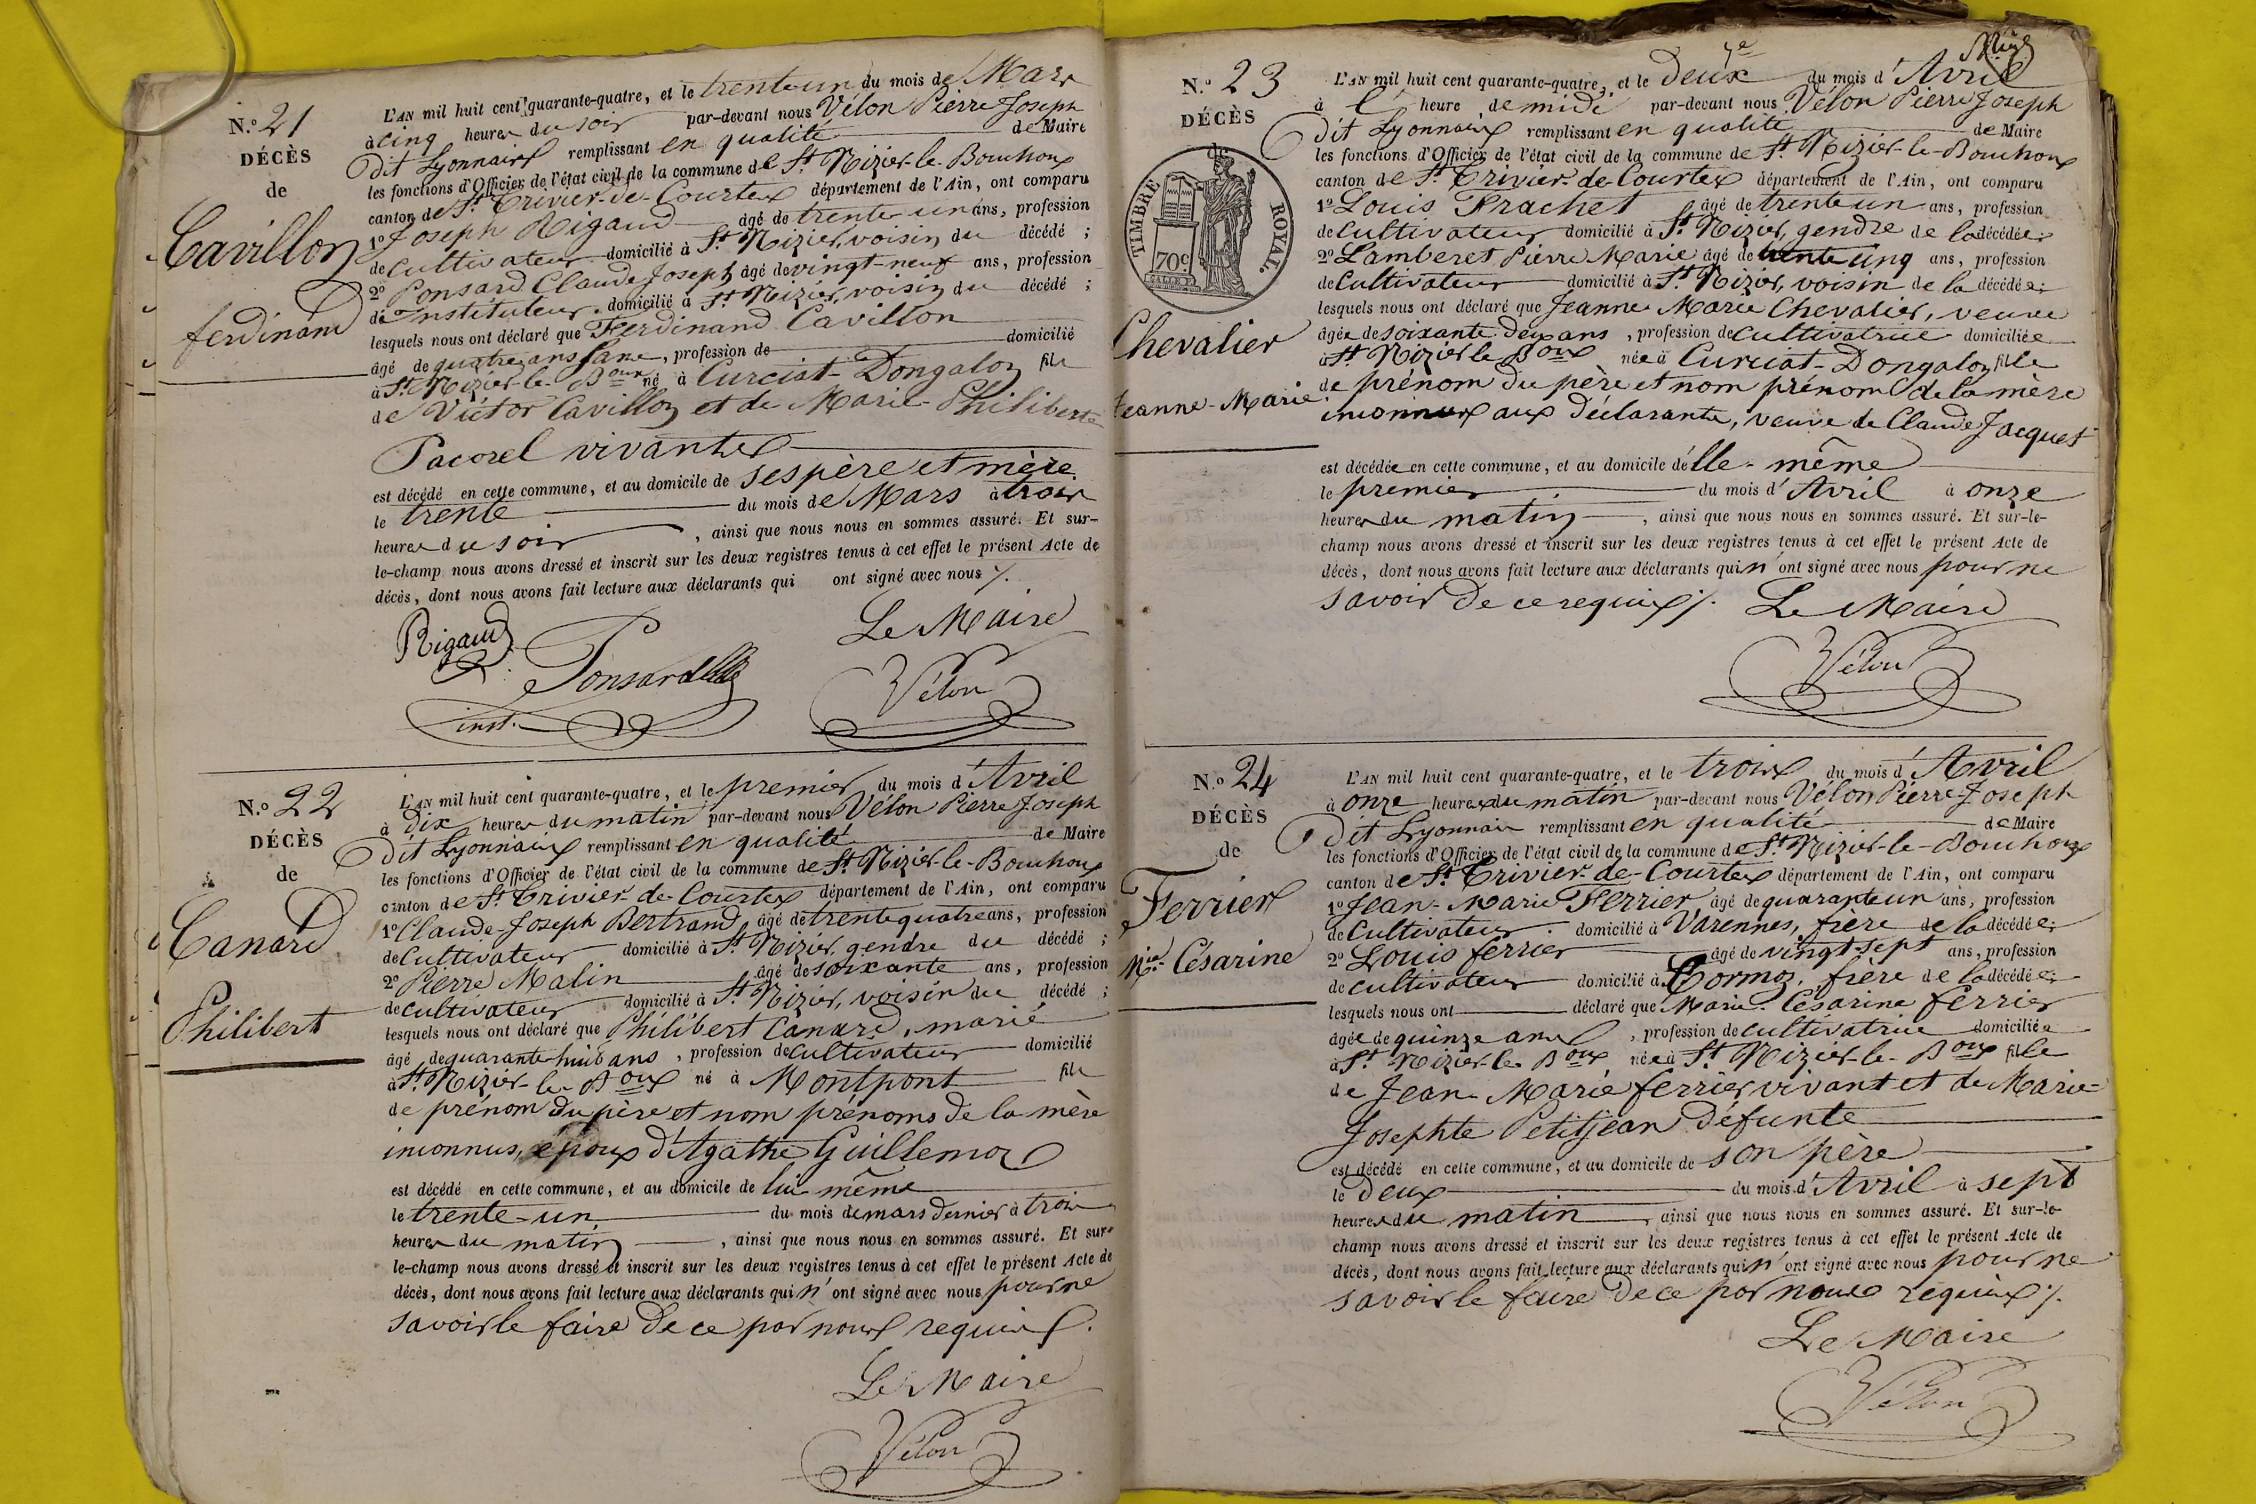 N.o 21
DÉCÈS
de
Cavillon
ferdinand
L'AN mil huit cent quarante-quatre, et le trente un du mois de Mars
à cinq heures du soir par-devant nous Vélon Pierre Joseph
dit Lyonnais remplissant en qualité de Maire
les fonctions d'Officier de l'état civil de la commune de St Nizier-le-Bouchoux
canton de St Trivier-de-Courtes département de l'Ain, ont comparu
1o Joseph Rigaud âgé de trente un ans, profession
de cultivateur domicilié à St Nizier, voisin du décédé ;
2o Ponsard Claude Joseph âgé de vingt-neuf ans, profession
de Instituteur domicilié à St Nizier, voisin du décédé ;
lesquels nous ont déclaré que Ferdinand Cavillon
âgé de quatre ans sans, profession de domicilié
à St Nizier-le-Boux né à Curciat-Dongalon fils
de Victor Cavillon et de Marie-Philiberte
Pacorel vivants
est décédé en cette commune, et au domicile de ses père et mère
le trente du mois de Mars à trois
heures du soir, ainsi que nous nous en sommes assuré. Et sur-
le-champ nous avons dressé et inscrit sur les deux registres tenus à cet effet le présent Acte de
décès, dont nous avons fait lecture aux déclarants qui ont signé avec nous /.
Le Maire
Rigaud
Ponsard
inst.
Vélon
N.o 22
DÉCÈS
de
Canard
Philibert
L'AN mil huit cent quarante-quatre, et le premier du mois d'Avril
à dix heures du matin par-devant nous Vélon Pierre Joseph
dit Lyonnais remplissant en qualité de Maire
les fonctions d'Officier de l'état civil de la commune de St Nizier-le-Bouchoux
canton de St Trivier-de-Courtes département de l'Ain, ont comparu
1o Claude-Joseph Bertrand âgé de trente quatre ans, profession
de cultivateur domicilié à St Nizier, gendre du décédé ;
2o Pierre Malin âgé de soixante ans, profession
de cultivateur domicilié à St Nizier, voisin du décédé ;
lesquels nous ont déclaré que Philibert Canard, marié
âgé de quarante huit ans, profession de cultivateur domicilié
à St Nizier-le-Boux né à Montpont fils
de prénom du père et nom prénoms de la mère
inconnus, époux d'Agathe Guillemoz
est décédé en cette commune, et au domicile de lui même
le trente-un du mois de mars dernier à trois
heures du matin, ainsi que nous nous en sommes assuré. Et sur-
le-champ nous avons dressé et inscrit sur les deux registres tenus à cet effet le présent Acte de
décès, dont nous avons fait lecture aux déclarants qui n'ont signé avec nous pour ne
savoir le faire de ce par nous requis.
Le Maire
Vélon
N.o 23
DÉCÈS
de
TIMBRE ROYAL.
70c
Chevalier
Jeanne-Marie
L'AN mil huit cent quarante-quatre, et le deux du mois d'Avril
à l' heure de midi par-devant nous Vélon Pierre Joseph
dit Lyonnais remplissant en qualité de Maire
les fonctions d'Officier de l'état civil de la commune de St Nizier-le-Bouchoux
canton de St Trivier-de-Courtes département de l'Ain, ont comparu
1o Louis Prachet âgé de trente un ans, profession
de cultivateur domicilié à St Nizier, gendre de la décédée ;
2o Lamberet Pierre Marie âgé de trente cinq ans, profession
de Cultivateur domicilié à St Nizier, voisin de la décédée ;
lesquels nous ont déclaré que Jeanne Marie Chevalier, veuve
âgée de soixante deux ans, profession de cultivatrice domiciliée
à St Nizier le Boux née à Curciat-Dongalon fille
de prénom du père et nom prénom de la mère
inconnus aux déclarants, veuve de Claude Jacquet
est décédée en cette commune, et au domicile d'elle-même
le premier du mois d'Avril à onze
heures du matin, ainsi que nous nous en sommes assuré. Et sur-le-
champ nous avons dressé et inscrit sur les deux registres tenus à cet effet le présent Acte de
décès, dont nous avons fait lecture aux déclarants qui n'ont signé avec nous pour ne
savoir de ce requis /. Le Maire
Vélon
N.o 24
DÉCÈS
de
Ferrier
Mie Césarine
L'AN mil huit cent quarante-quatre, et le trois du mois d'Avril
à onze heures du matin par-devant nous Vélon Pierre Joseph
dit Lyonnais remplissant en qualité de Maire
les fonctions d'Officier de l'état civil de la commune de St Nizier-le-Bouchoux
canton de St Trivier-de-Courtes département de l'Ain, ont comparu
1o Jean-Marie Ferrier âgé de quarante un ans, profession
de Cultivateur domicilié à Varennes, frère de la décédée ;
2o Louis ferrier âgé de vingt-sept ans, profession
de cultivateur domicilié à Cormoz, frère de la décédée ;
lesquels nous ont déclaré que Marie Césarine ferrier
âgée de quinze ans, profession de cultivatrice domiciliée
à St Nizier-le-Boux née à St Nizier-le-Boux fille
de Jean Marie ferrier vivant et de Marie-
Josephte Petitjean défunte
est décédé en cette commune, et au domicile de son père
le deux du mois d'Avril à sept
heures du matin, ainsi que nous nous en sommes assuré. Et sur-le-
champ nous avons dressé et inscrit sur les deux registres tenus à cet effet le présent Acte de
décès, dont nous avons fait lecture aux déclarants qui n'ont signé avec nous pour ne
savoir le faire de ce par nous requis /.
Le Maire
Vélon